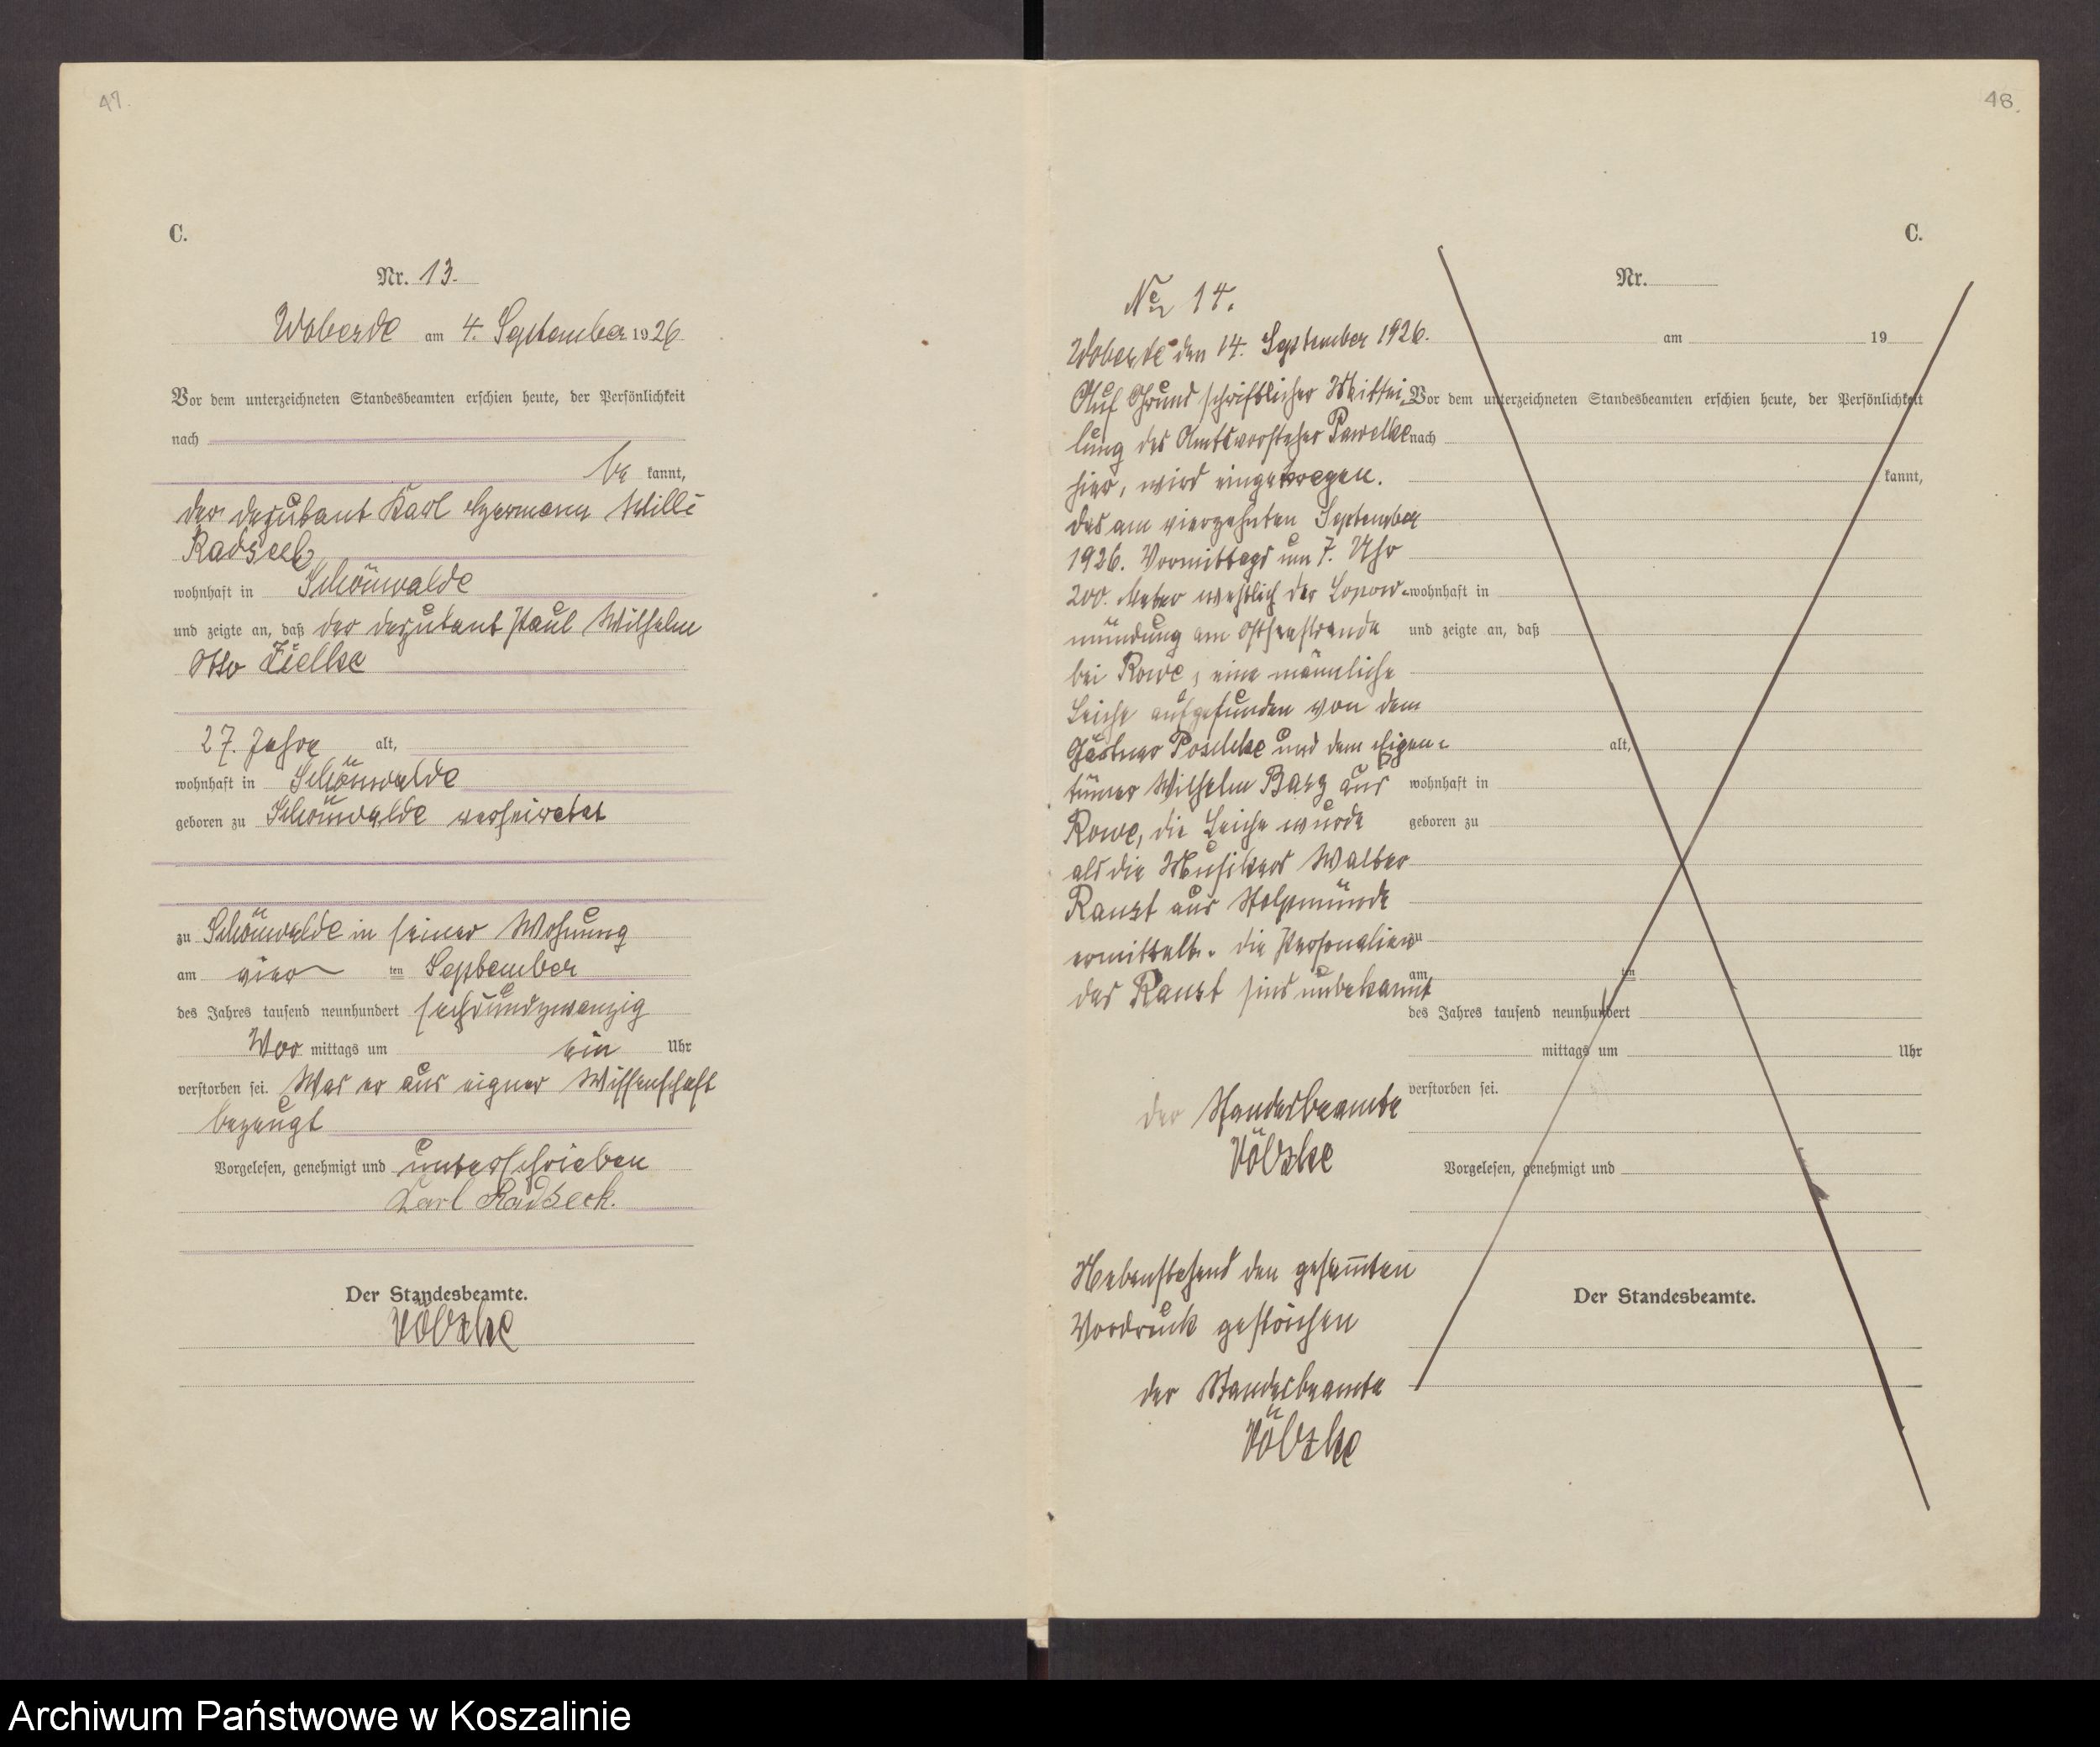 47.
C.
Nr. 13.
Woberde am 4. September 1926
Vor dem unterzeichneten Standesbeamten erschien heute, der Persönlichkeit
nach
be kannt,
der Deputant Karl Hermann Willi
Radseck
wohnhaft in Schönwalde
und zeigte an, daß der Deputant Paul Wilhelm
Otto Zielke
27. Jahre alt,
wohnhaft in Schönwalde
geboren zu Schönwalde verheiratet
zu Schönwalde in seiner Wohnung
am vier ten September
des Jahres tausend neunhundert sechsundzwanzig
Vor mittags um ein Uhr
verstorben sei. Was er aus eigner Wissenschaft
bezeugt
Vorgelesen, genehmigt und unterschrieben
Karl Radseck.
Der Standesbeamte.
Völzke
48.
C.
No 14.
Woberde den 14. September 1926.
Auf Grund schriftlicher Mittei-
lung des Amtsvorsteher Pawelke
hier, wird eingetragen.
das am vierzehnten September
1926. Vormittags um 7. Uhr
200. Meter westlich der Lopow-
mündung am Ostseestrande
bei Rowe, eine männliche
Leiche aufgefunden von dem
Gärtner Poschke und dem Eigen-
tümer Wilhelm Barz aus
Rowe, die Leiche wurde
als die Musikers Walter
Ranzt aus Stolpmünde
ermittelt. die Personalien
des Ranzt sind unbekannt
der Standesbeamte
Völzke
Nebenstehend den gesammten
Vordruck gestrichen
der Standesbeamte
Völzke
Nr.
am 19
Vor dem unterzeichneten Standesbeamten erschien heute, der Persönlichkeit
nach
kannt,
wohnhaft in
und zeigte an, daß
alt,
wohnhaft in
geboren zu
zu
am ten
des Jahres tausend neunhundert
mittags um Uhr
verstorben sei.
Vorgelesen, genehmigt und
Der Standesbeamte.
Archiwum Państwowe w Koszalinie